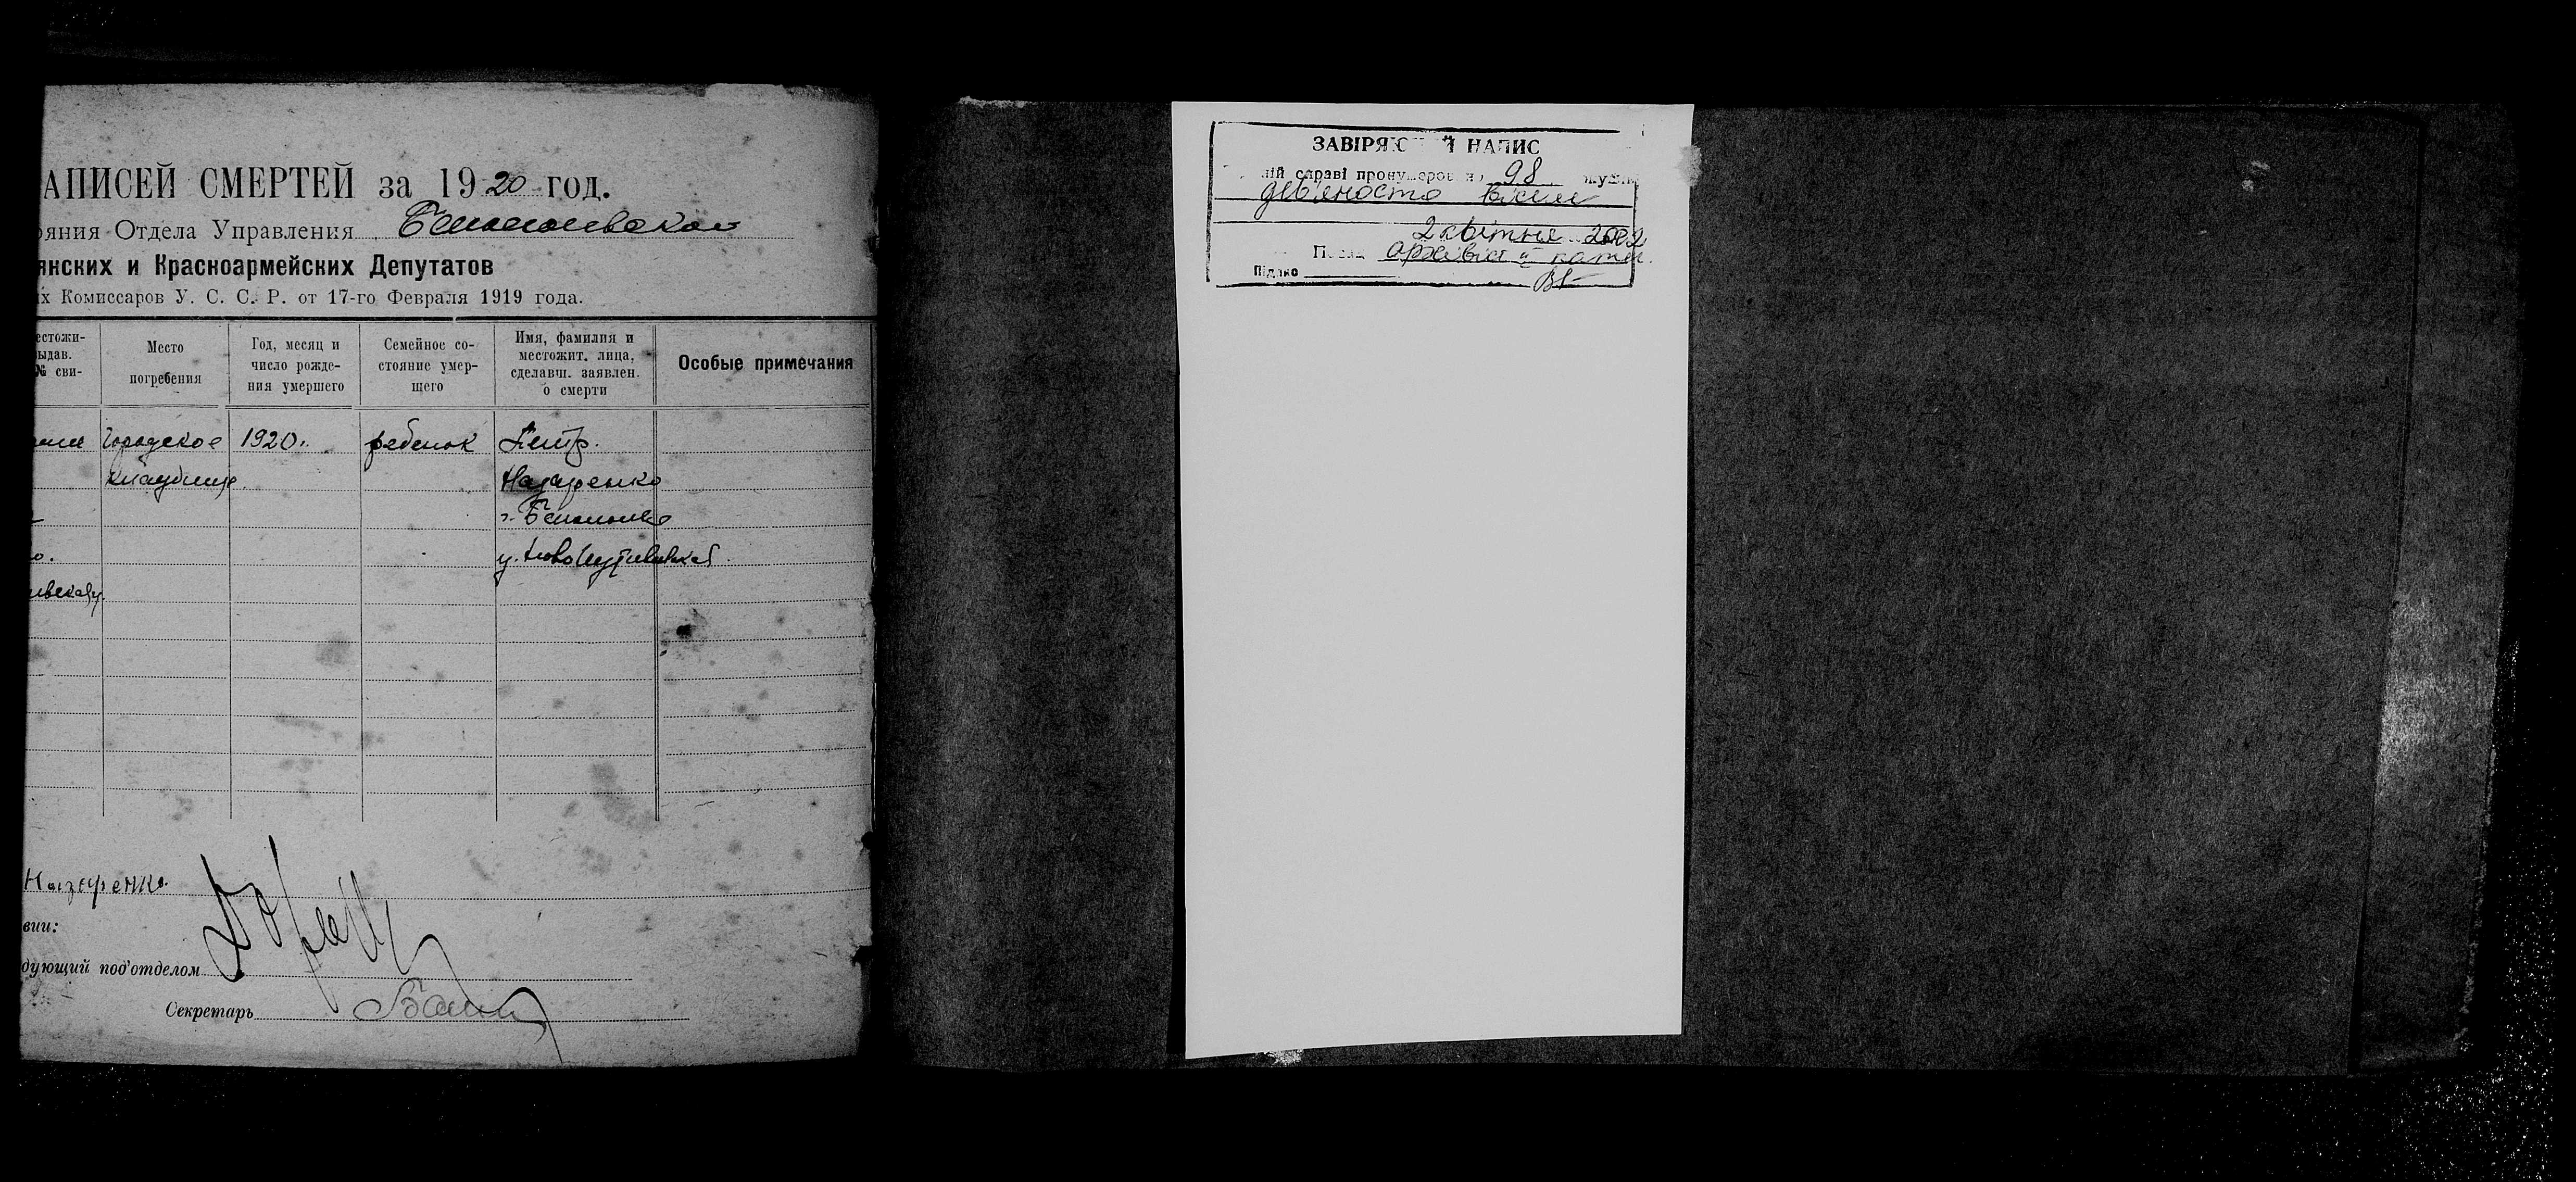 АПИСЕЙ СМЕРТЕЙ за 1920 год.
ояния Отдела Управления
янских и Красноармейских Депутатов
их Комиссаров У. С. С. Р. от 17-го Февраля 1919 года.
естожи-
выдав.
№ сви-
Место
погребения
Год, месяц и
число рожде-
ния умершего
Семейное со-
стояние умер-
щего
Имя, фамилия и
местожит. лица,
сделавш. заявлен.
о смерти
Особые примечания
Городское 1920г. ребенок Петр.
кладбище Назаренко
Назаренко
вии:
дующий под'отделом
Секретарь
ЗАВІРЯ Й НАПИС
ній справі пронумеров 98
дев'яносто вісім
2 квітня 2002
архівіст ІІ катег.
Підпис